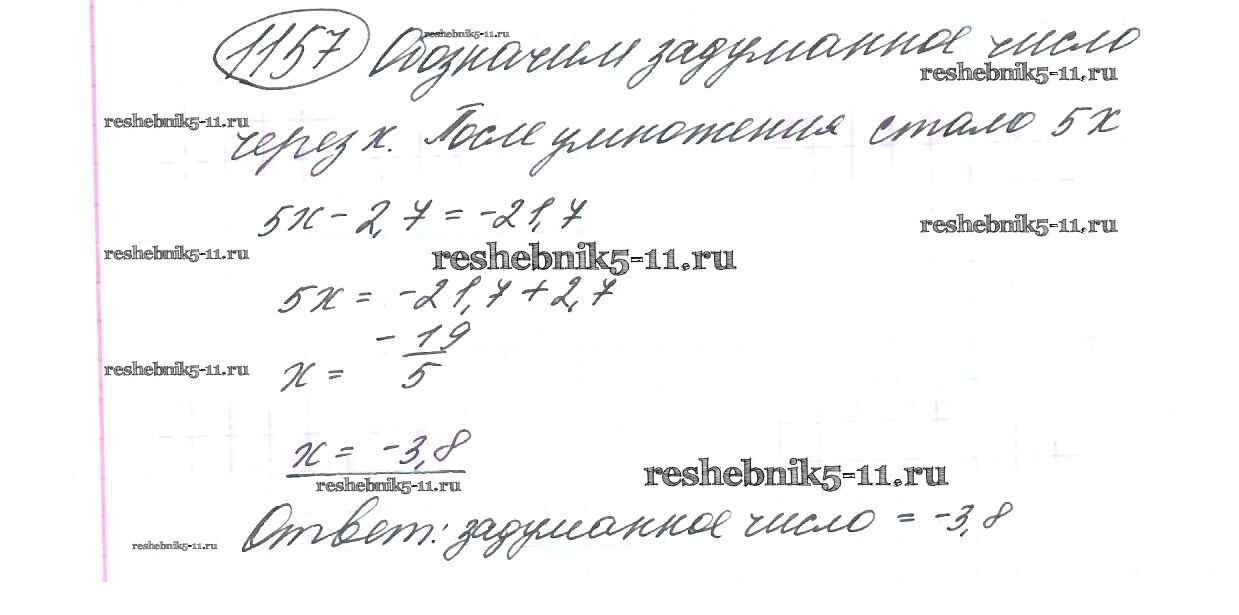 reshebnik5-11.ru
1157 Обозначим задуманное число
reshebnik5-11.ru
reshebnik5-11.ru
через x. После умножения стало 5x
5x - 2,7 = -21,7
reshebnik5-11.ru
reshebnik5-11.ru
reshebnik5-11.ru
5x = -21,7 + 2,7
x = -19/5
reshebnik5-11.ru
x = -3,8
reshebnik5-11.ru
reshebnik5-11.ru
Ответ: задуманное число = -3,8
reshebnik5-11.ru